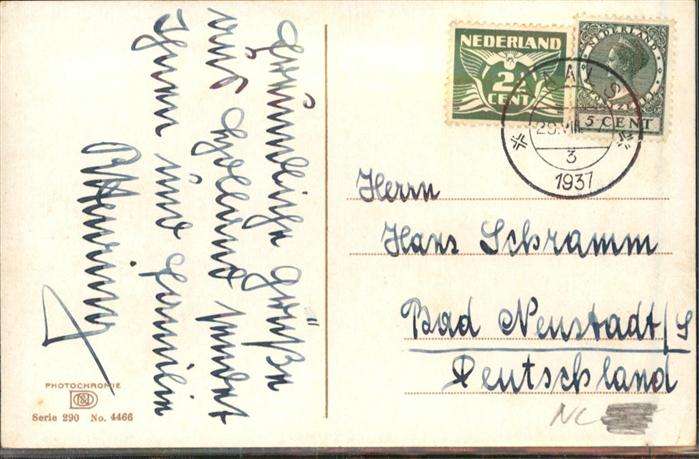 Freundliche Grüße
aus Holland sendet
Ihnen und Familie
NEDERLAND
2½
CENT
NEDERLAND
5 CENT
VAALS
29.VIII
3
1937
Herrn
Hans Schramm
Bad Neustadt/S
Deutschland
PHOTOCHROMIE
Serie 290 No. 4466
NC